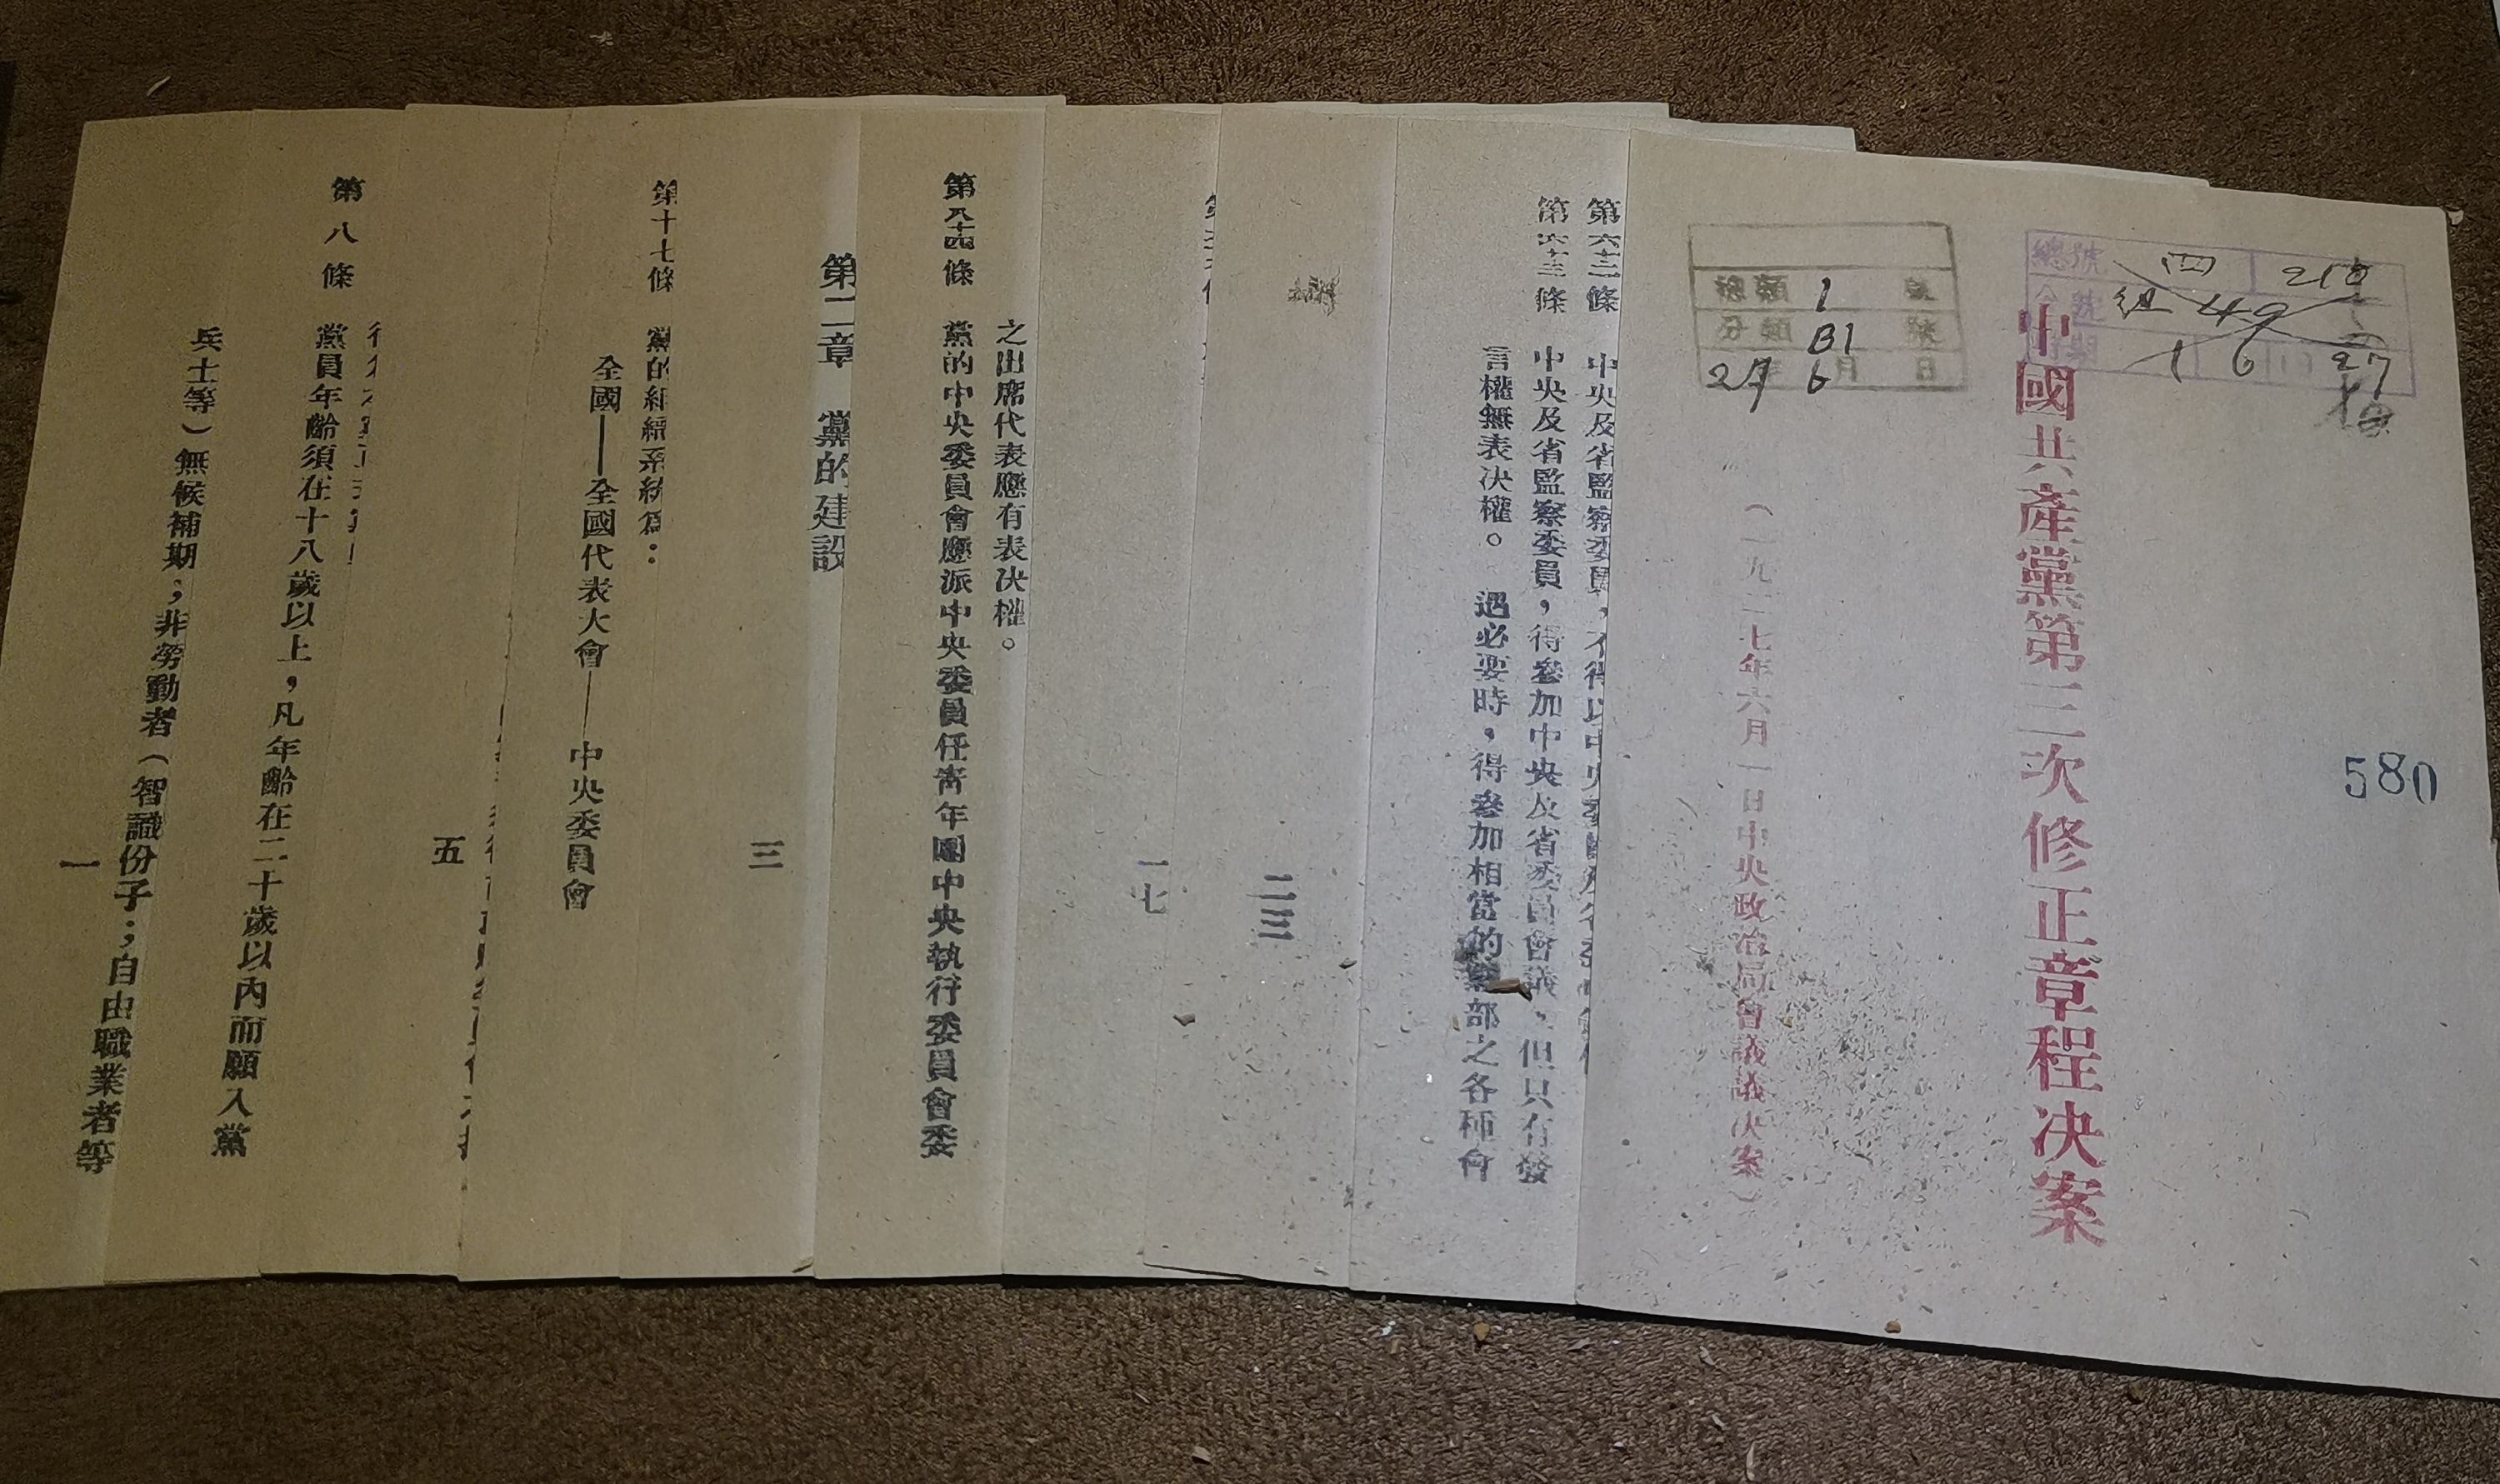 580
總號 四 210
組 49
1 6 27
總類 1 號
分類 B1 號
27年 6月 日
中國共產黨第三次修正章程决案
（一九二七年六月一日中央政治局會議議决案）
第六十二條 中央及省監察委員，不得以中央委員及省委
第六十三條 中央及省監察委員，得參加中央及省委員會議，但只有發
言權無表决權。 遇必要時，得參加相當的黨部之各種會
二三
一七
之出席代表應有表决權。
第八十四條 黨的中央委員會應派中央委員任靑年團中央執行委員會委
第二章 黨的建設
三
第十七條 黨的組織系統爲：
全國——全國代表大會——中央委員會
五
第八條 黨員年齡須在十八歲以上，凡年齡在二十歲以內而願入黨
兵士等）無候補期；非勞動者（智識份子；自由職業者等
一